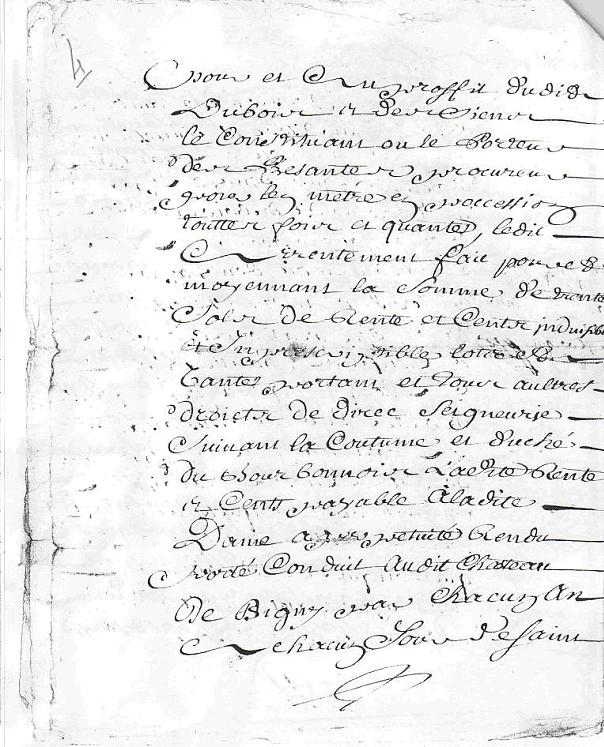 4
pour et Au proffit dudit
Duboir et des Siens
le Constituant ou le Porteur
des Presantes procureur
pour les metre en pocession
touttes fois et quantes, ledit
Arrentement fait pour et
moyennant la Somme de trente
Sols de Rente et Cents indivisible
et Imprescriptible lots et
Vantes portant et tous autres
droicts de direc Seigneurie
Suivant la Coutume et duché
du Bourbonnois Laditte Rente
et Cents payable Aladite
Dame a perpetuité Rendu
porté Conduit Audit Chateau
De Bigny par Chacun An
A chacun Jour de Saint